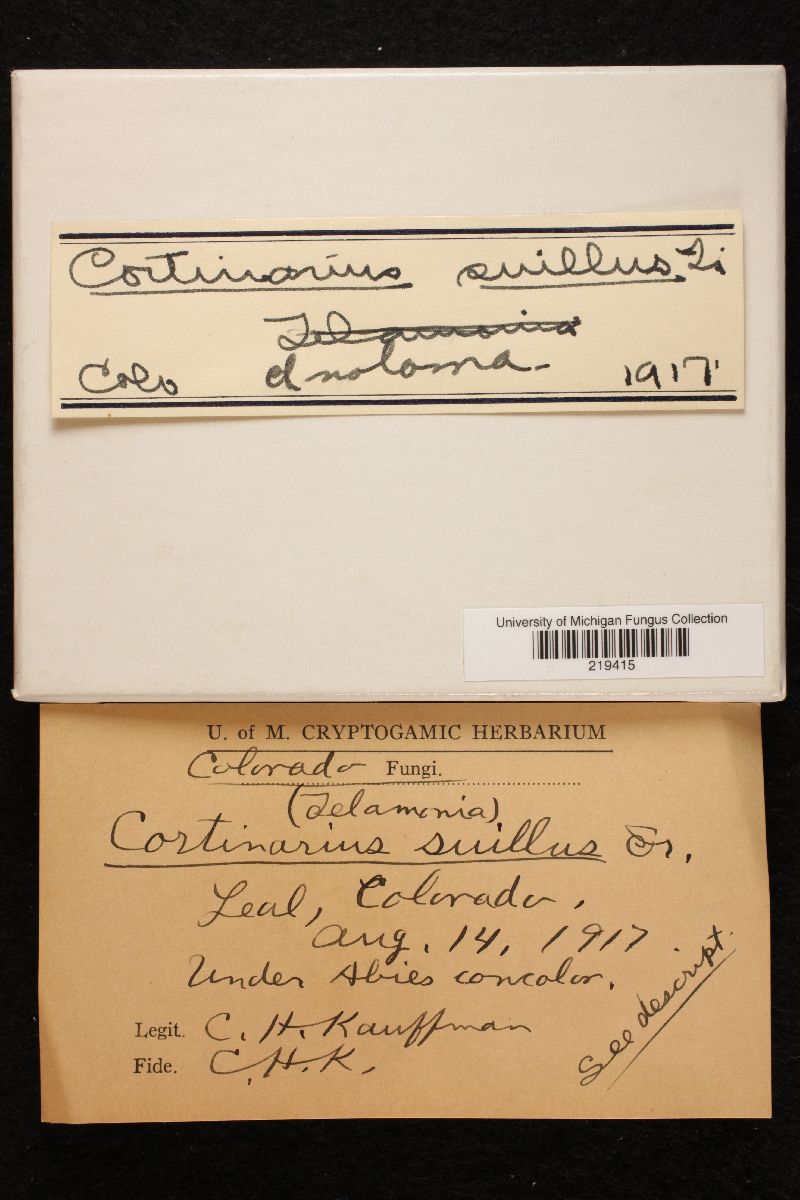 Cortinarius suillus. Fr
Telamonia
Colo Inoloma - 1917
University of Michigan Fungus Collection
219415
U. of M. CRYPTOGAMIC HERBARIUM
Colorado Fungi.
(Telamonia)
Cortinarius suillus Fr.
Leal, Colorado,
Aug. 14, 1917
Under Abies concolor.
Legit. C. H. Kauffman
Fide. C. H. K.
See descript.